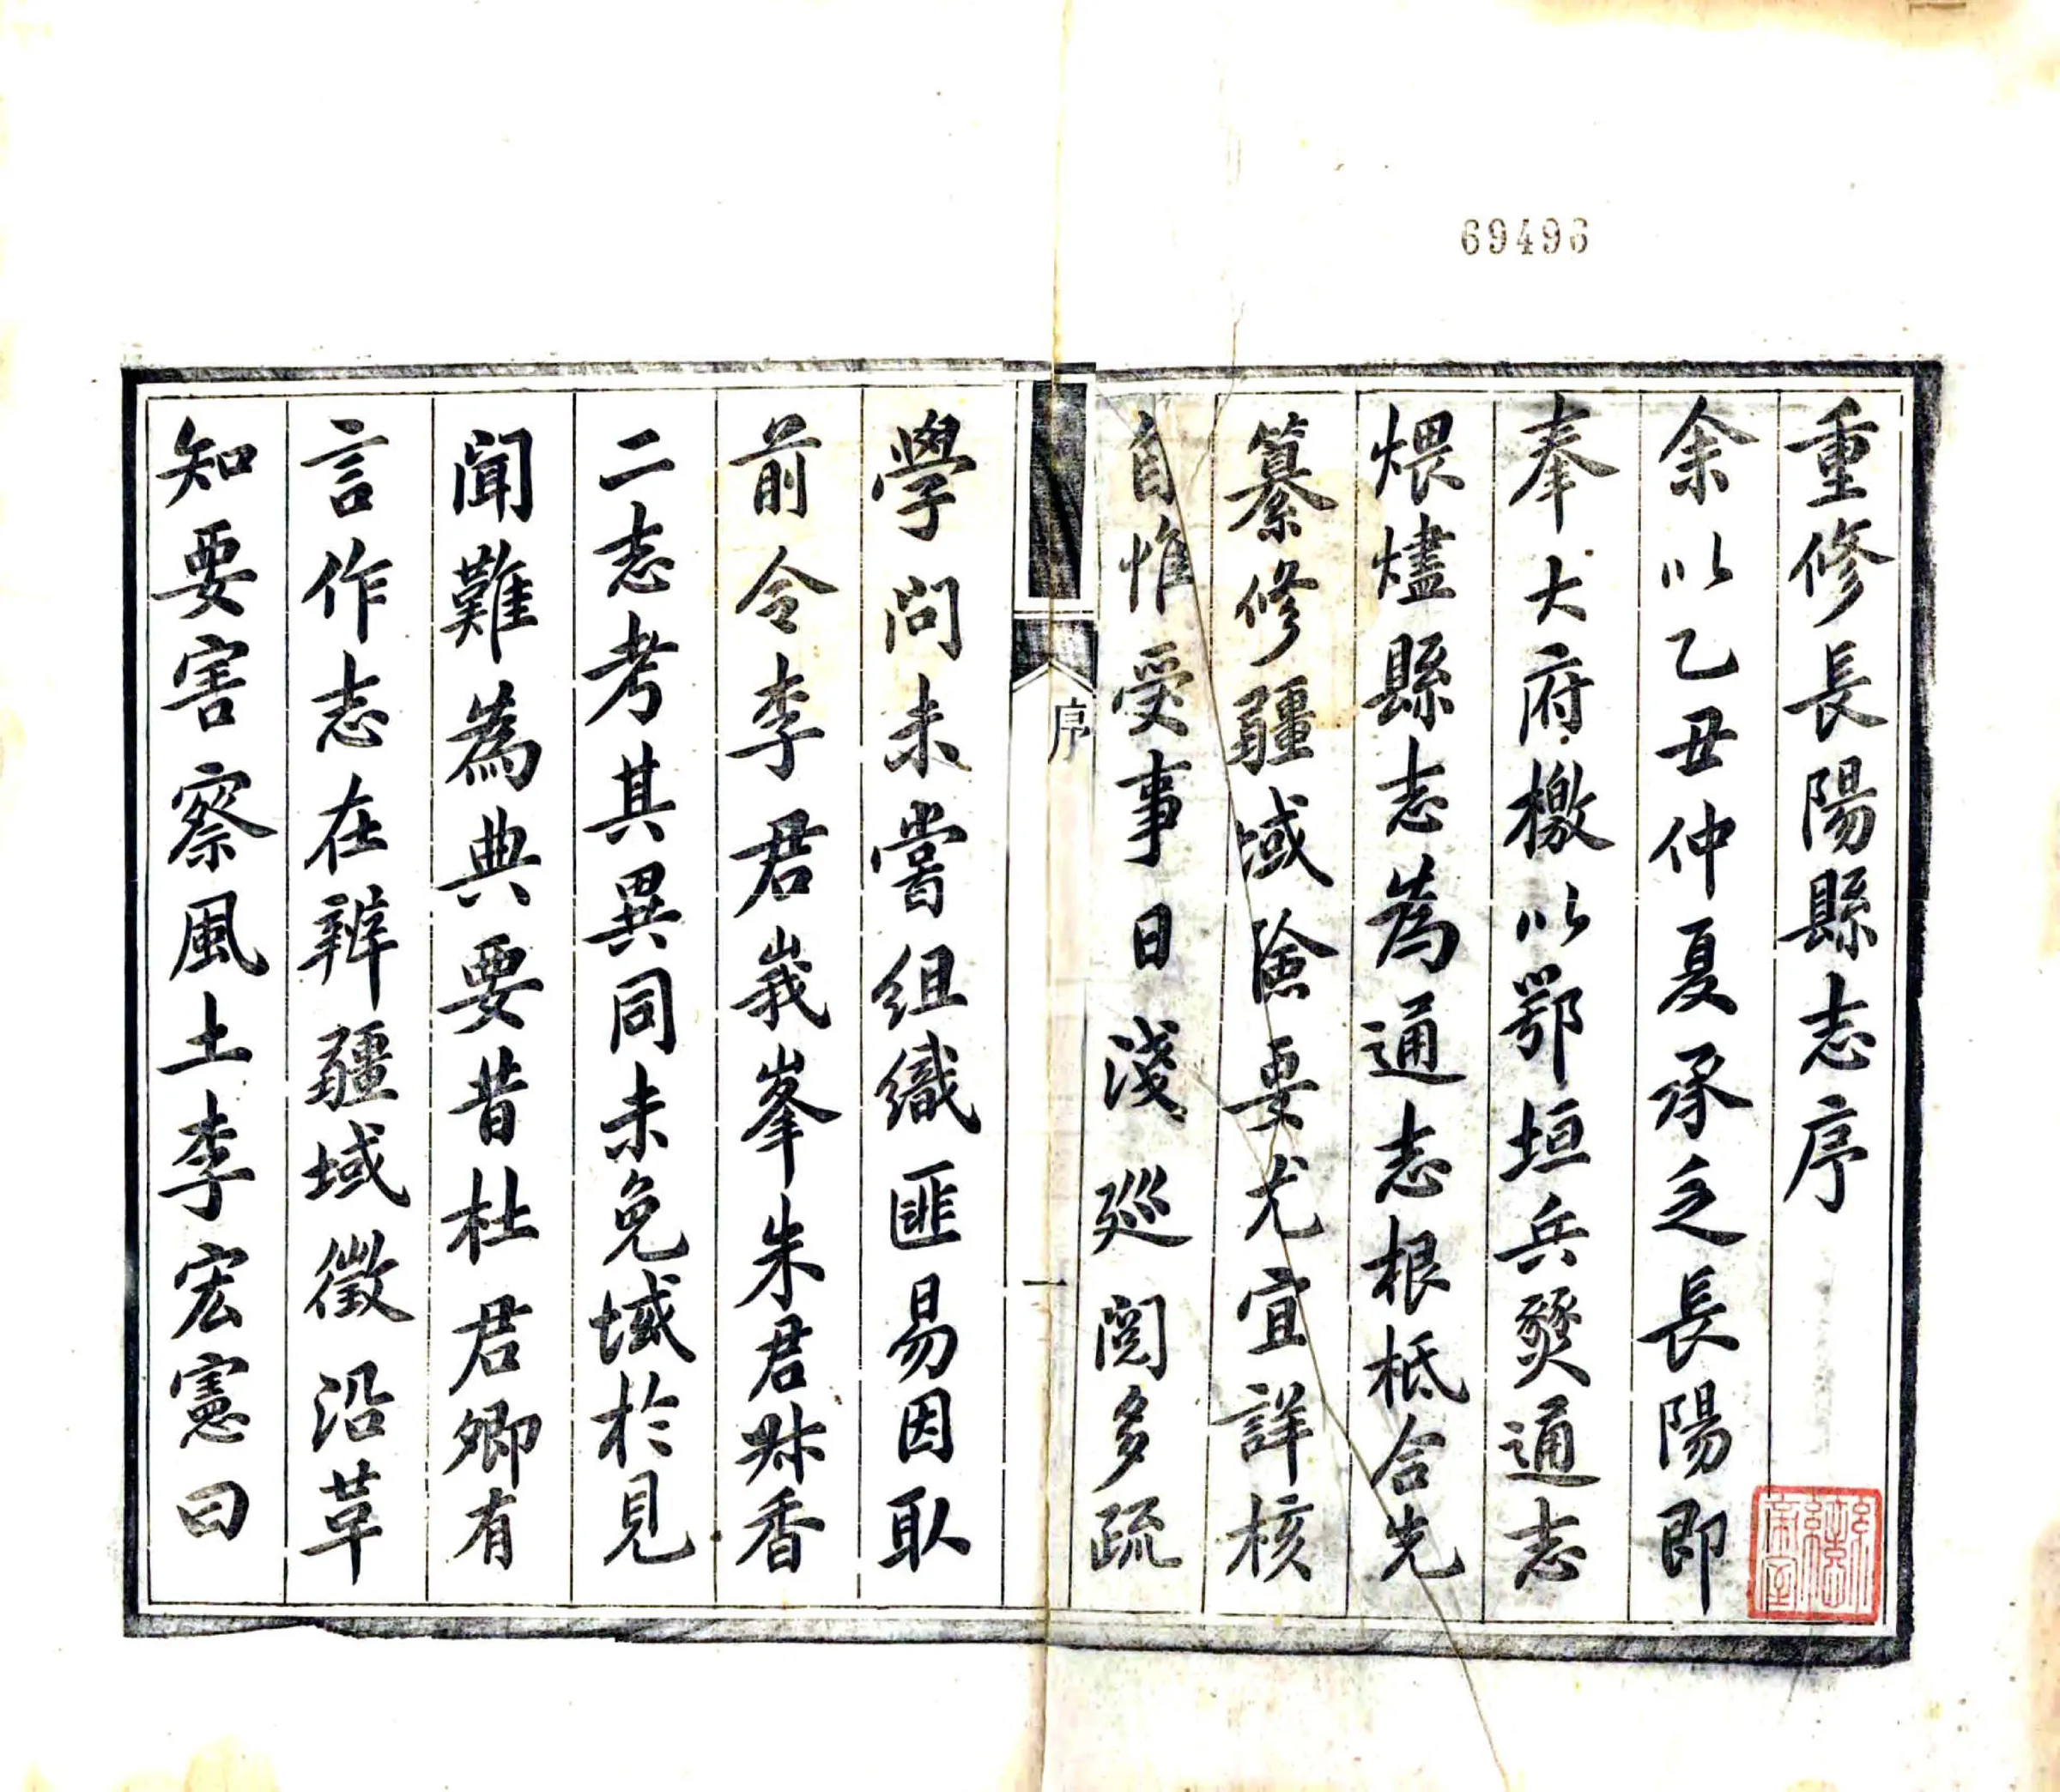 69496
重修長陽縣志序
余以乙丑仲夏承乏長陽即
奉大府檄以鄂垣兵燹通志
煨燼縣志為通志根柢合先
纂修疆域險要尤宜詳核
自惟受事日淺巡閱多疏
序
一
學問未嘗組織匪易因取
前令李君峩峯朱君香
二志考其異同未免域於見
聞難為典要昔杜君卿有
言作志在辨疆域徵沿革
知要害察風土李宏憲曰